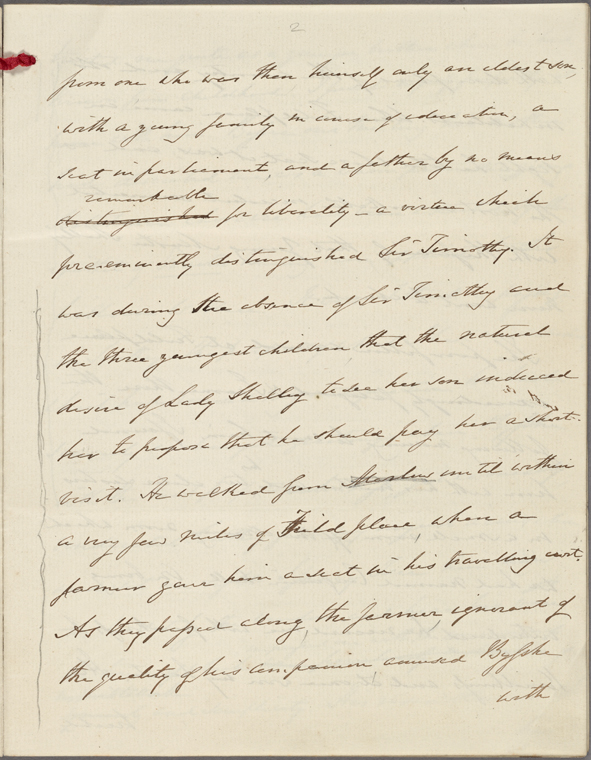 2
from one who was then himself only an eldest son,
with a young family in course of education, a
seat in parliament, and a father by no means
remarkable
distinguished for liberality – a virtue which
pre-eminently distinguished Sir Timothy. It
was during the absence of Sir Timothy and
the three youngest children that the natural
desire of Lady Shelley to see her son induced
her to propose that he should pay her a short
visit. He walked from until within
a very few miles of Field place, when a
farmer gave him a seat in his travelling cart.
As they passed along, the farmer, ignorant of
the quality of his companion amused Bysshe
with